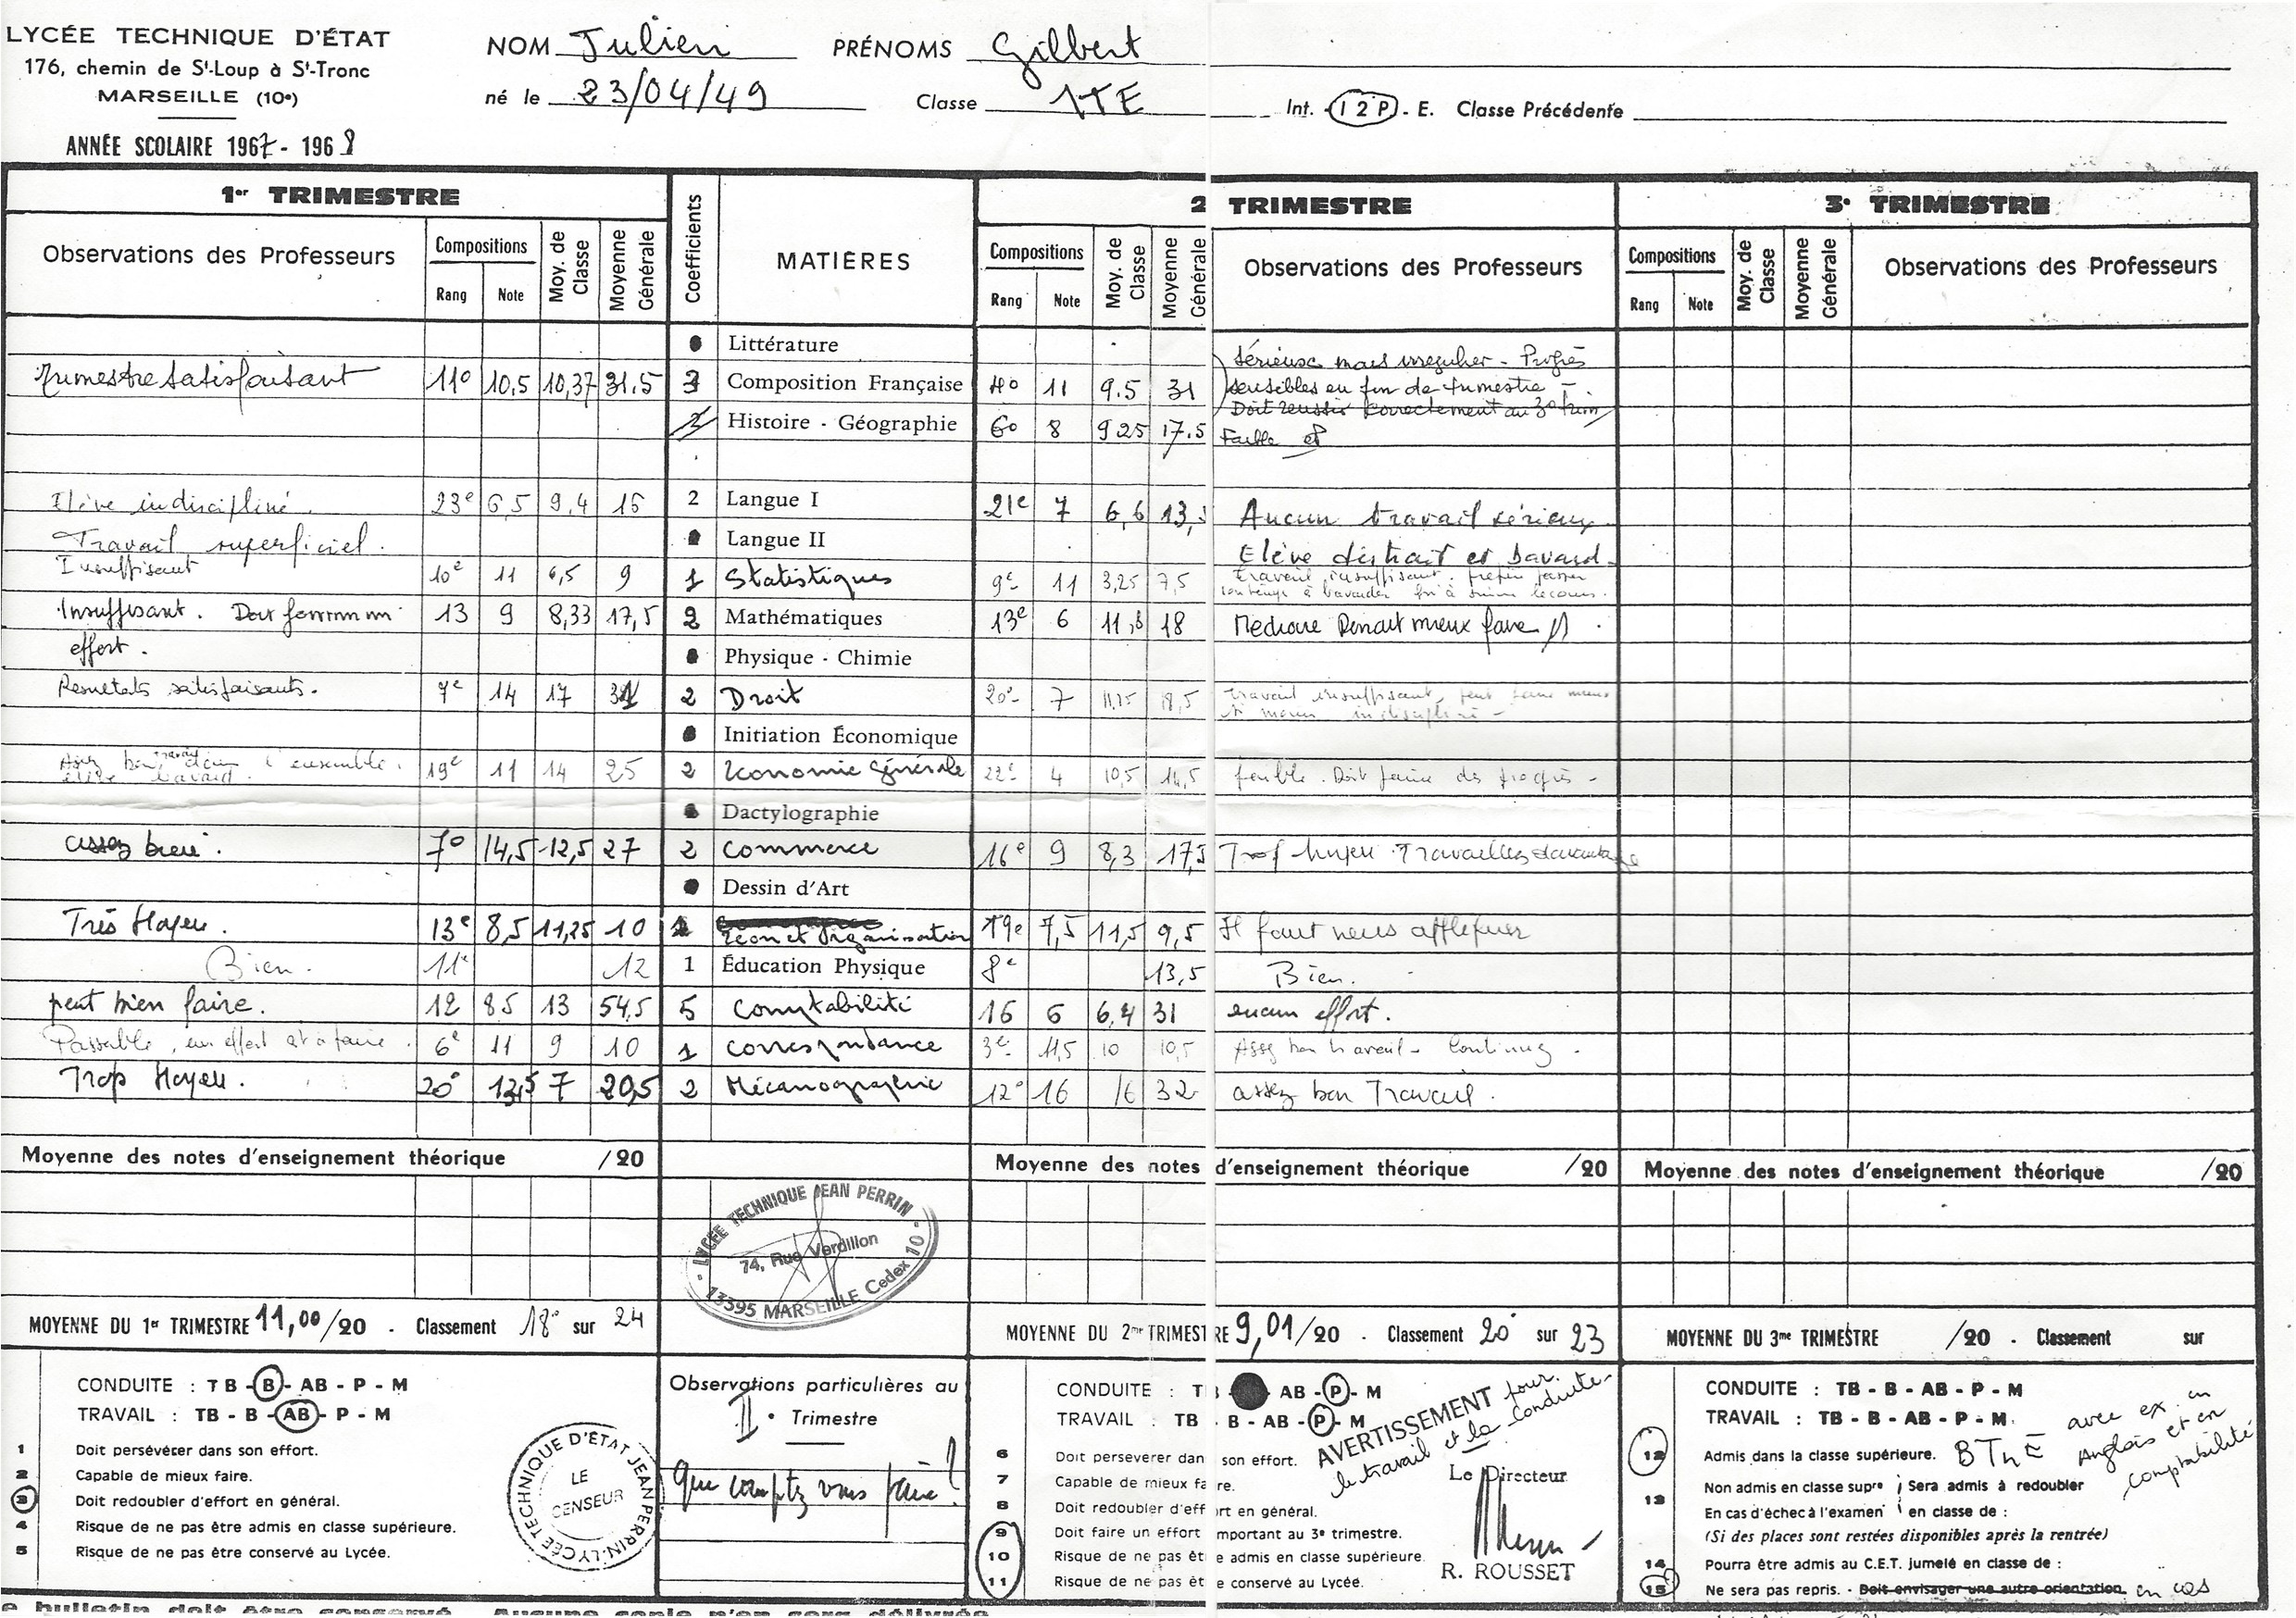 LYCÉE TECHNIQUE D'ÉTAT
176, chemin de St-Loup à St-Tronc
MARSEILLE (10e)
ANNÉE SCOLAIRE 1967 - 1968
NOM Julien PRÉNOMS Gilbert
né le 23/04/49 Classe 1TE Int. - 1 2 P - E. Classe Précédente
1er TRIMESTRE
Observations des Professeurs Compositions Rang Note Moy. de Classe Moyenne Générale
Coefficients MATIÈRES
2 TRIMESTRE
Compositions Rang Note Moy. de Classe Moyenne Générale Observations des Professeurs
3e TRIMESTRE
Compositions Rang Note Moy. de Classe Moyenne Générale Observations des Professeurs
Littérature
Trimestre satisfaisant 11e 10,5 10,37 31.5 3 Composition Française 4e 11 9.5 31 Sérieux mais irregulier - Progrès
sensibles en fin de trimestre -
Doit réussir correctement au 3e trim
2 Histoire - Géographie 6e 8 9 25 17.5 Faible
Elève indiscipliné. 23e 6,5 9,4 16 2 Langue I 21e 7 6,6 13, Aucun travail sérieux
Travail superficiel. Langue II Elève distrait et bavard
Insuffisant 10e 11 6,5 9 1 Statistiques 9e 11 3,25 7,5 Travail insuffisant.
Insuffisant. Doit 13 9 8,33 17,5 2 Mathématiques 13e 6 11,8 18 Mediocre mieux faire
effort. Physique - Chimie
Resultats satisfaisants. 7e 14 17 31 2 Droit 20e 7 11,25 18,5 Travail insuffisant, peut faire mieux
si moins indiscipliné -
Initiation Économique
Assez bon travail dans l'ensemble.
élève bavard. 19e 11 14 25 2 Economie Générale 22e 4 10,5 14,5 faible. Doit faire des progrès -
Dactylographie
assez bien. 7e 14,5 12,5 27 2 Commerce 16e 9 8,3 17,5 Trop moyen Travaillez davantage
Dessin d'Art
Très Moyen. 13e 8,5 11,25 10 1 et Organisation 19e 7,5 11,5 9,5 Il faut vous appliquer
Bien. 11e 12 1 Éducation Physique 8e 13,5 Bien.
peut bien faire. 12 85 13 54,5 5 Comptabilité 16 6 6,4 31 aucun effort.
Passable, un effort est à faire. 6e 11 9 10 1 Correspondance 3e 11,5 10 10,5 Assez bon travail - Continuez.
Trop Moyen. 20e 13,5 7 20,5 2 Mécanographie 12e 16 16 32 assez bon Travail.
Moyenne des notes d'enseignement théorique /20
Moyenne des notes d'enseignement théorique /20
Moyenne des notes d'enseignement théorique /20
LYCÉE TECHNIQUE JEAN PERRIN
74, Rue Verdillon
13395 MARSEILLE Cedex 10
MOYENNE DU 1er TRIMESTRE 11,00/20 - Classement 18e sur 24
MOYENNE DU 2me TRIMESTRE 9,01/20 - Classement 20e sur 23
MOYENNE DU 3me TRIMESTRE /20 - Classement sur
CONDUITE : TB - B - AB - P - M
TRAVAIL : TB - B - AB - P - M
1 Doit persévérer dans son effort.
2 Capable de mieux faire.
3 Doit redoubler d'effort en général.
4 Risque de ne pas être admis en classe supérieure.
5 Risque de ne pas être conservé au Lycée.
LYCÉE TECHNIQUE D'ÉTAT JEAN PERRIN
LE CENSEUR
Observations particulières au
II e Trimestre
Que comptez vous faire ?
CONDUITE : T AB - P - M
TRAVAIL : TB - B - AB - P - M
AVERTISSEMENT pour
le travail et la conduite
6 Doit perseverer dan son effort.
7 Capable de mieux fa re.
8 Doit redoubler d'eff rt en général.
9 Doit faire un effort mportant au 3e trimestre.
10 Risque de ne pas êt e admis en classe supérieure.
11 Risque de ne pas êt e conservé au Lycée.
Le Directeur
R. ROUSSET
CONDUITE : TB - B - AB - P - M
TRAVAIL : TB - B - AB - P - M.
12 Admis dans la classe supérieure. BTnE avec ex. en
Anglais et en
comptabilité
13 Non admis en classe supre Sera admis à redoubler
En cas d'échec à l'examen en classe de :
(Si des places sont restées disponibles après la rentrée)
14 Pourra être admis au C.E.T. jumelé en classe de :
15 Ne sera pas repris. - Doit envisager une autre orientation en cas
e bulletin doit être conservé. Aucune copie n'en sera délivrée